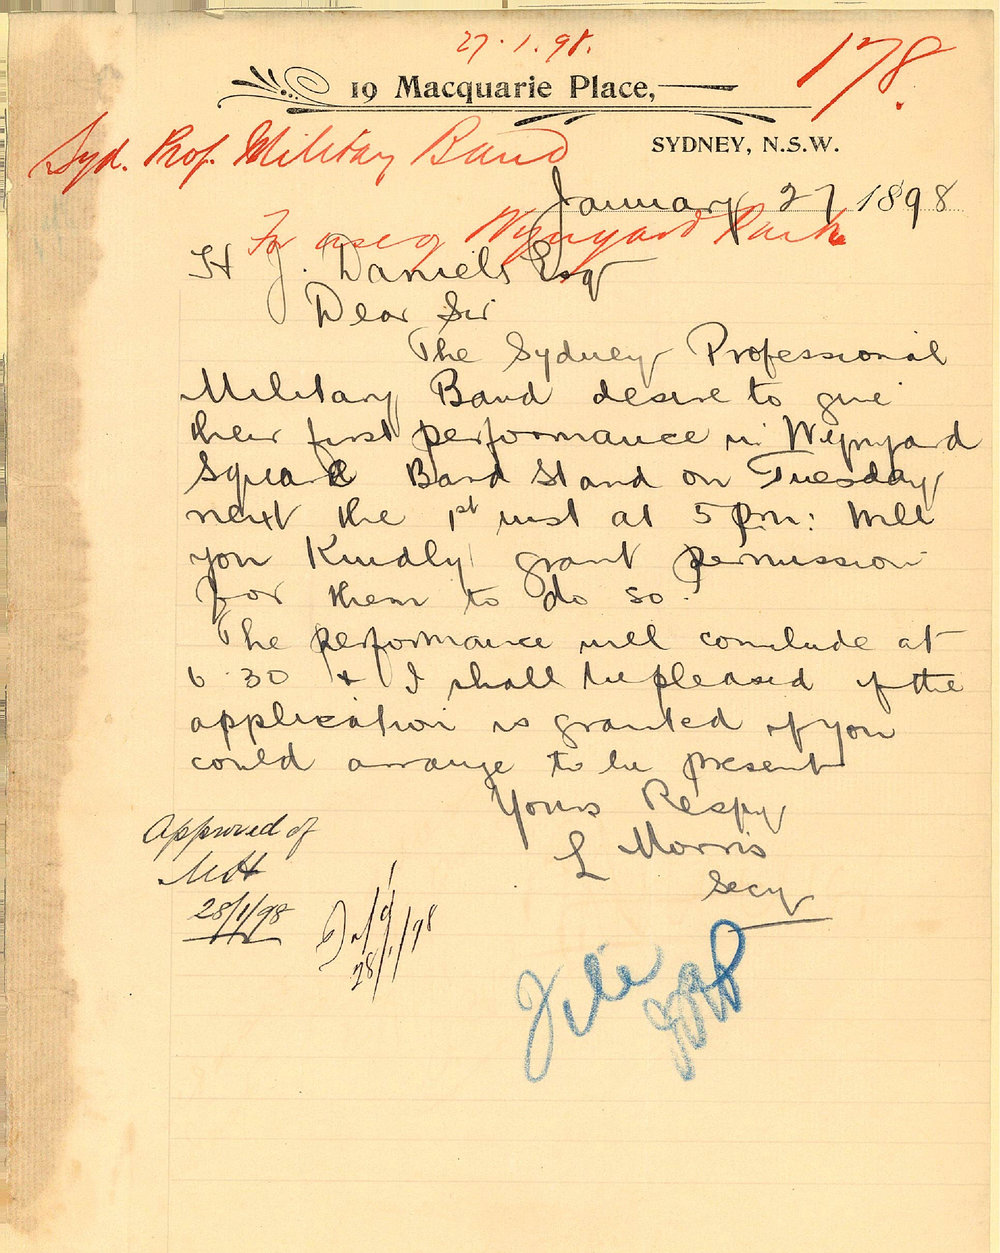 27.1.98.
178.
19 Macquarie Place,
SYDNEY, N.S.W.
Syd. Prof. Military Band
January 27 1898
For use of Wynyard Park
H J. Daniels Esq
Dear Sir
The Sydney Professional
Military Band desire to give
their first performance in Wynyard
Square Band Stand on Tuesday
next the 1st inst at 5 p.m: Will
you Kindly grant permission
for them to do so.
The performance will conclude at
6.30 & I shall be pleased if the
application is granted if you
could arrange to be present
Yours Respy
L Morris
Secy
Approved of
28/1/98
28/1/98
File